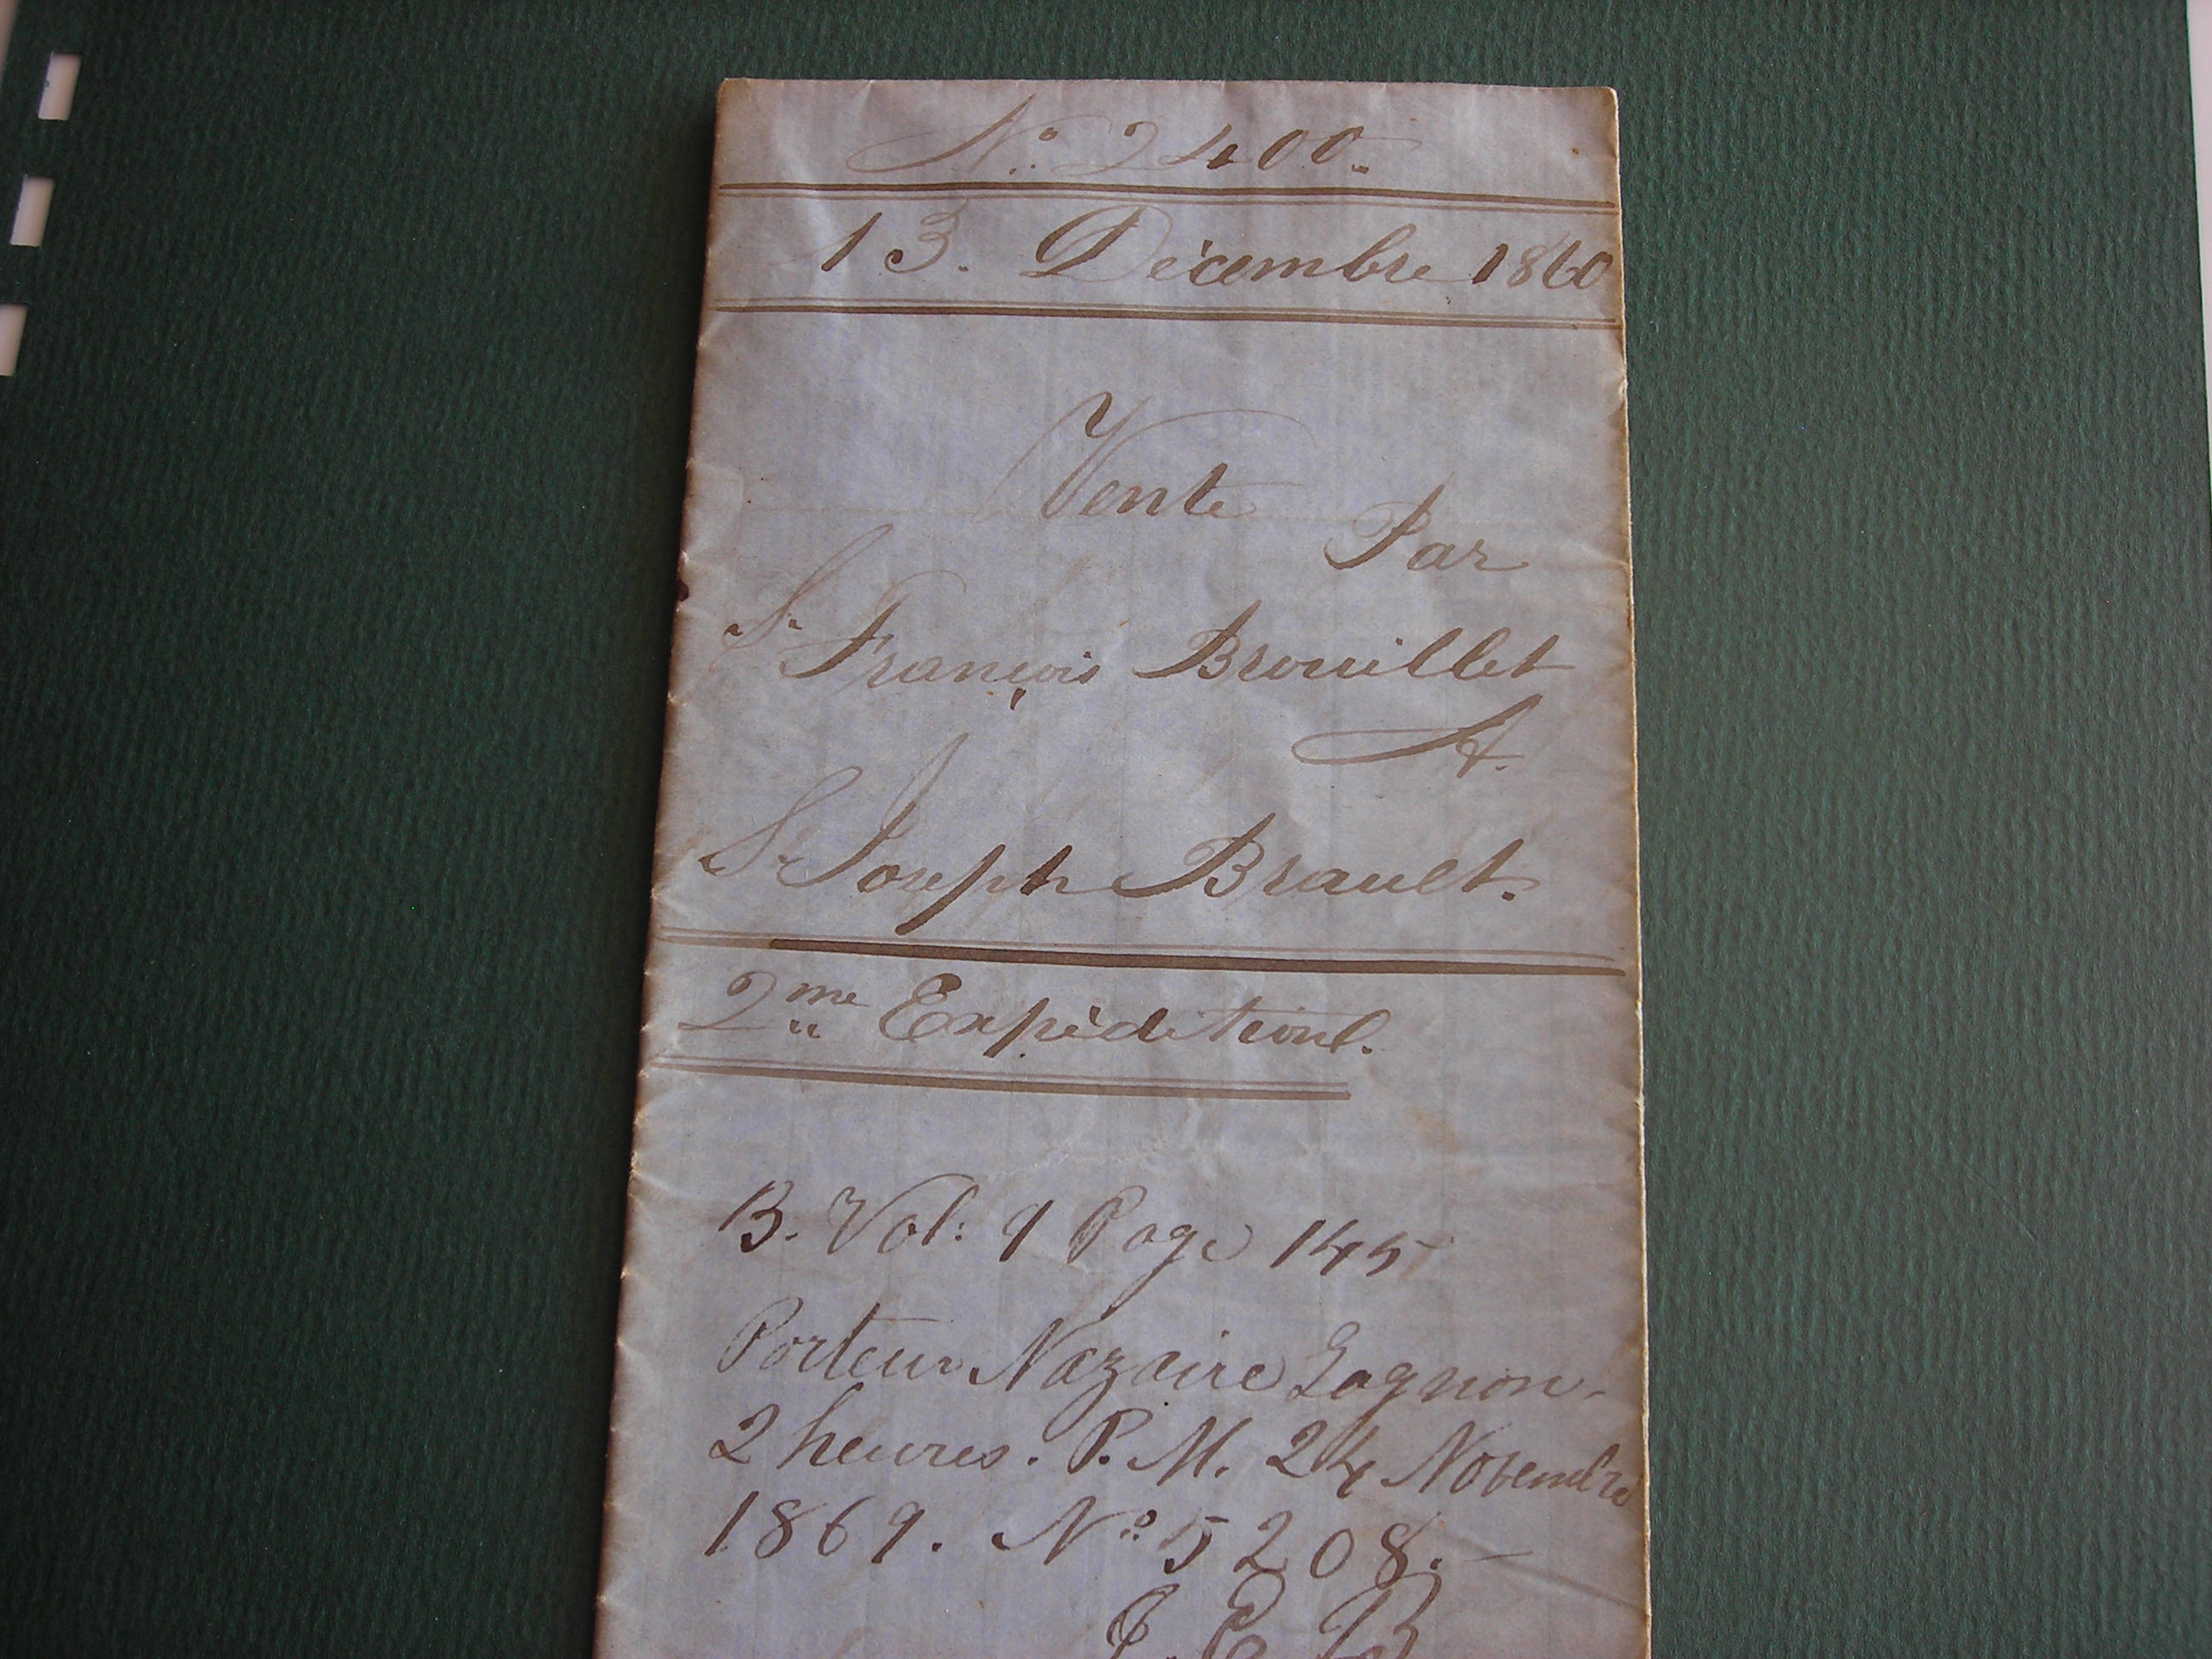 No. 2400.
13. Décembre 1860
Vente
Par
Sr. François Brouillet
A.
Sr. Joseph Brault.
2me Expédition.
B. Vol: 9 Page 145
Porteur Nazaire Gagnon.
2 heures. P. M. 24 Novembre
1869. No. 5208.